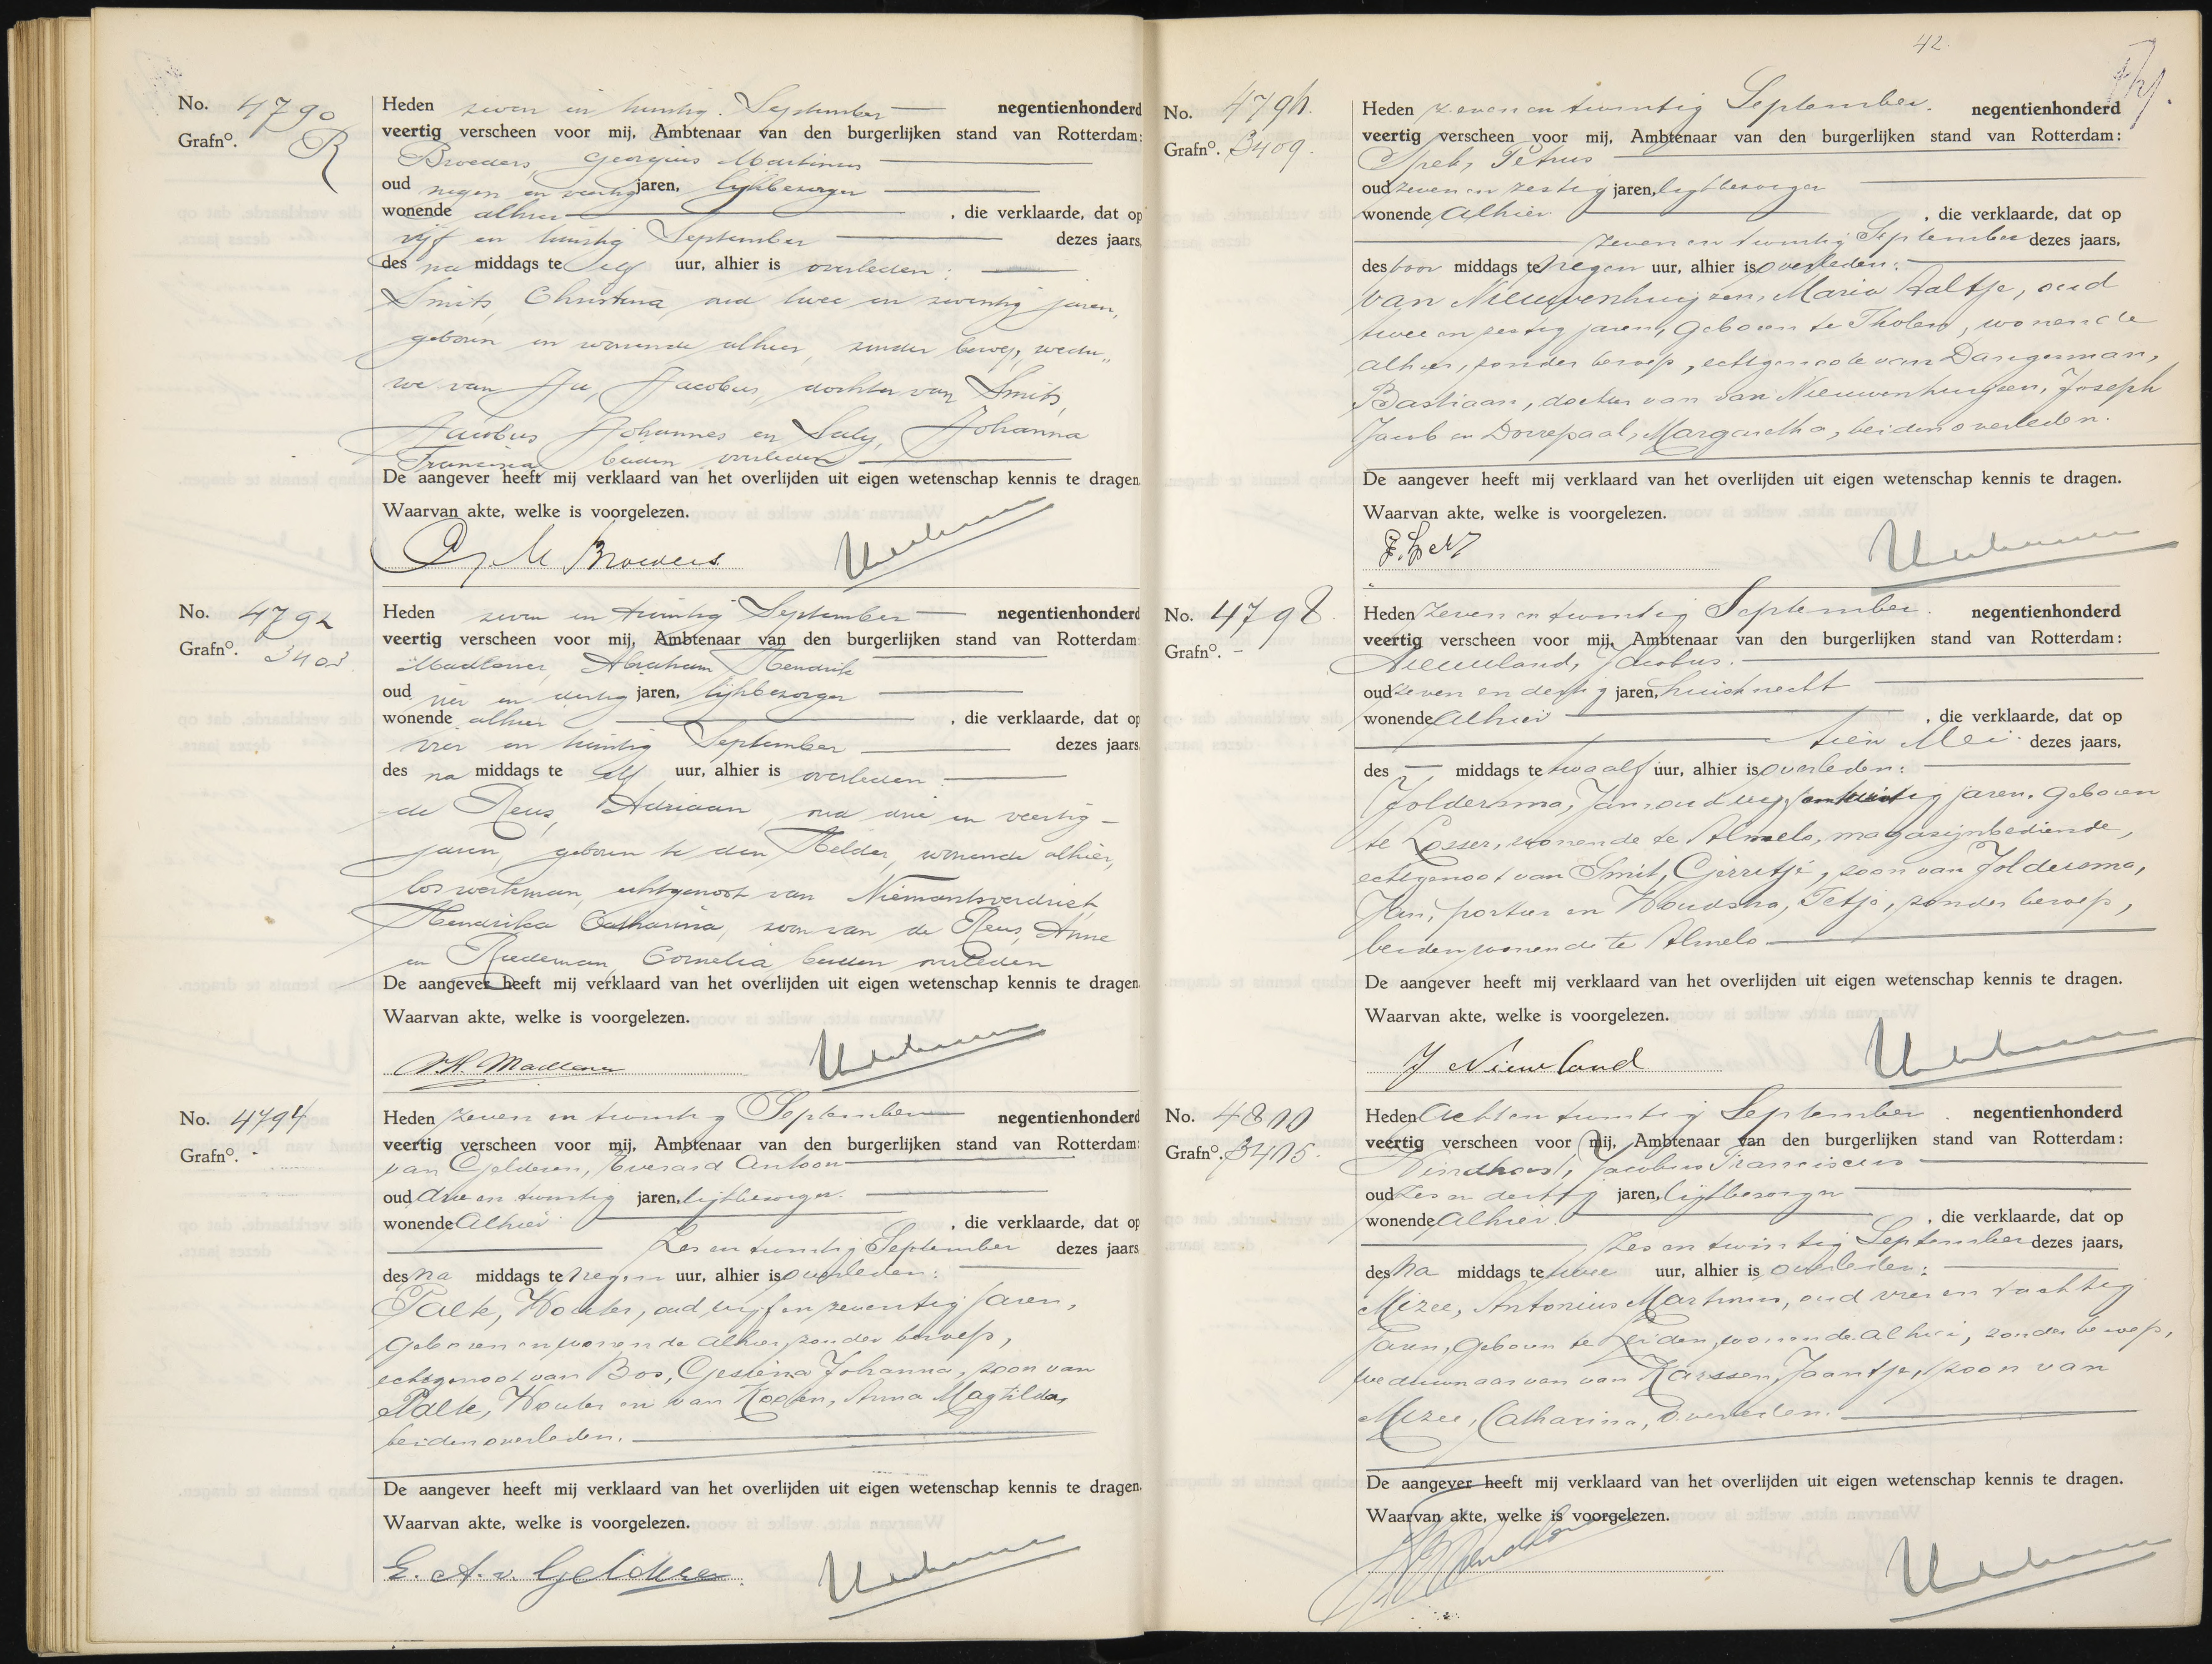 No. 4790
Grafno. R
Heden zeven en twintig September negentienhonderd
veertig verscheen voor mij, Ambtenaar van den burgerlijken stand van Rotterdam:
Broeders, Georgius Martinus
oud negen en veertig jaren, lijkbezorger
wonende alhier , die verklaarde, dat op
vijf en twintig September dezes jaars,
des na middags te elf uur, alhier is overleden:
Smits, Christina oud twee en zeventig jaren,
geboren en wonende alhier, zonder beroep, wedu„
we van Jacobus, dochter van Smits,
Jacobus Johannes en Johanna
Francina beiden overleden
De aangever heeft mij verklaard van het overlijden uit eigen wetenschap kennis te dragen.
Waarvan akte, welke is voorgelezen.
G. M Broeders
No. 4792
Grafno. 3403.
Heden zeven en twintig September negentienhonderd
veertig verscheen voor mij, Ambtenaar van den burgerlijken stand van Rotterdam:
Madlener, Abraham Hendrik
oud vier en dertig jaren, lijkbezorger
wonende alhier , die verklaarde, dat op
vier en twintig September dezes jaars
des na middags te elf uur, alhier is overleden
de Reus, Adriaan, oud drie en veertig
jaren, geboren te den Helder, wonende alhier,
los werkman, echtgenoot van Niemantsverdriet,
Hendrika Catharina, zoon van de Reus, Anne
en Cornelia beiden overleden
De aangever heeft mij verklaard van het overlijden uit eigen wetenschap kennis te dragen.
Waarvan akte, welke is voorgelezen.
A.H. Madlener
No. 4794
Grafno. -
Heden zeven en twintig September negentienhonderd
veertig verscheen voor mij, Ambtenaar van den burgerlijken stand van Rotterdam:
van Gelderen, Everard Antoon
oud drie en twintig jaren, lijkbezorger.
wonende Alhier , die verklaarde, dat op
Zes en twintig September dezes jaars
des na middags te negen uur, alhier is overleden:
Palte, Wouter, oud vijf en zeventig jaren,
geboren en wonende alhier, zonder beroep,
echtgenoot van Bos, Gesiena Johanna, zoon van
Palte, Wouter en van Anna Magtilda,
beiden overleden.
De aangever heeft mij verklaard van het overlijden uit eigen wetenschap kennis te dragen.
Waarvan akte, welke is voorgelezen.
E. A. v. Gelderen
42.
No. 4796.
Grafno. 3409.
Heden zeven en twintig September. negentienhonderd
veertig verscheen voor mij, Ambtenaar van den burgerlijken stand van Rotterdam:
Petrus
oud zeven en zestig jaren, lijkbezorger
wonende Alhier , die verklaarde, dat op
zeven en twintig September dezes jaars,
des voor middags te negen uur, alhier is overleden:
van Nieuwenhuijzen, Maria Aaltje, oud
twee en zestig jaren, geboren te Tholen, wonende
alhier, zonder beroep, echtgenoote van Dangerman,
Bastiaan, dochter van van Nieuwenhuijzen, Joseph
Jacob en Dorrepaal, Margaretha, beiden overleden.
De aangever heeft mij verklaard van het overlijden uit eigen wetenschap kennis te dragen.
Waarvan akte, welke is voorgelezen.
No. 4798.
Grafno. -
Heden zeven en twintig September. negentienhonderd
veertig verscheen voor mij, Ambtenaar van den burgerlijken stand van Rotterdam:
Nieuwland, Jacobus.
oud zeven en dertig jaren, huisknecht
wonende Alhier , die verklaarde, dat op
tien Mei dezes jaars,
des — middags te twaalf uur, alhier is overleden:
Joldersma, Jan, oud vijf en twintig jaren, geboren
te Losser, wonende te Almelo, magazijnbediende,
echtgenoot van Smit, Gerritje, zoon van Joldersma,
Jan, portier en Houdstra, Tetje, zonder beroep,
beiden wonende te Almelo
De aangever heeft mij verklaard van het overlijden uit eigen wetenschap kennis te dragen.
Waarvan akte, welke is voorgelezen.
J Nieuwland
No. 4800
Grafno. 3405.
Heden Acht en twintig September. negentienhonderd
veertig verscheen voor mij, Ambtenaar van den burgerlijken stand van Rotterdam:
Jacobus Franciscus
oud zes en dertig jaren, lijkbezorger
wonende Alhier. , die verklaarde, dat op
zes en twintig September dezes jaars,
des na middags te twee uur, alhier is overleden:
Mizee, Antonius Martinus, oud vier en tachtig
jaren, geboren te Leiden, wonende alhier, zonder beroep,
weduwnaar van van Karssen, Jaantje, zoon van
Mizee, Catharina, overleden.
De aangever heeft mij verklaard van het overlijden uit eigen wetenschap kennis te dragen.
Waarvan akte, welke is voorgelezen.